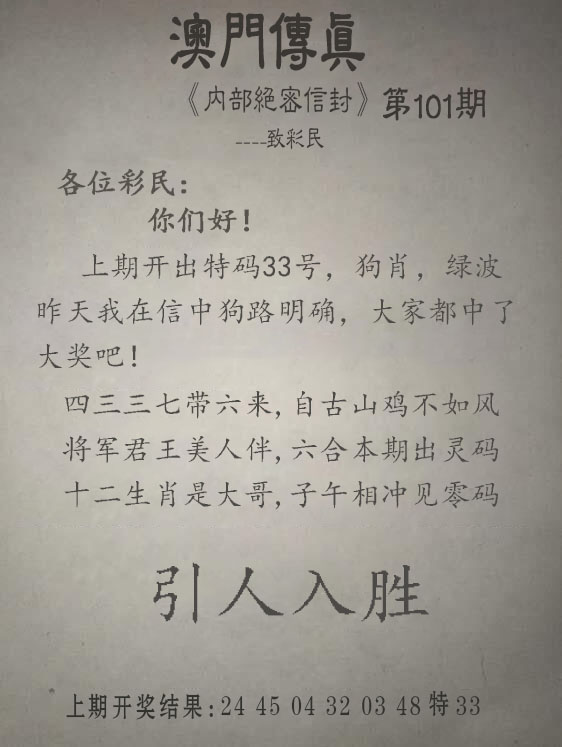 澳門傳真
《内部絕密信封》第101期
----致彩民
各位彩民：
你们好！
上期开出特码33号，狗肖，绿波
昨天我在信中狗路明确，大家都中了
大奖吧！
四三三七带六来,自古山鸡不如风
将军君王美人伴,六合本期出灵码
十二生肖是大哥,子午相冲见零码
引人入胜
上期开奖结果:24 45 04 32 03 48 特 33